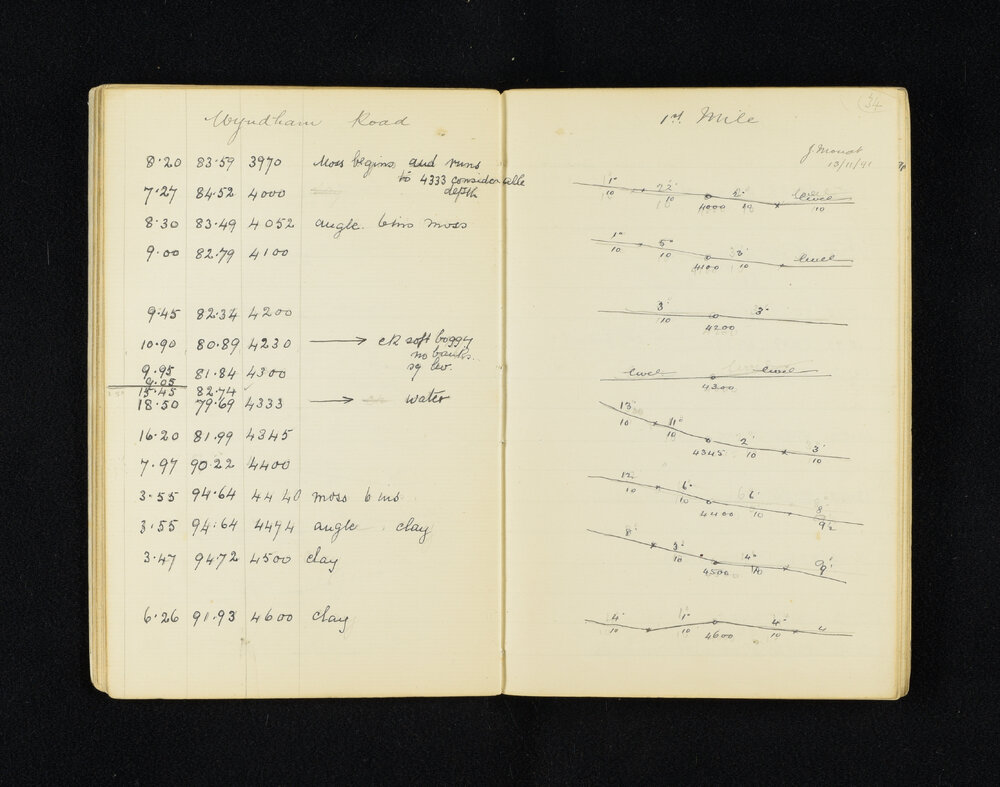 Wyndham Road
8.20 83.59 3970 Moss begins and runs
to 4333 considerable
depth
7.27 84.52 4000
8.30 83.49 4052 angle. 6 ins moss
9.00 82.79 4100
9.45 82.34 4200
10.90 80.89 4230 → ck soft boggy
no banks
9.95 81.84 4300
9.05
15.45 82.74
18.50 79.69 4333 → water
16.20 81.99 4345
7.97 90.22 4400
3.55 94.64 4440 moss 6 ins
3.55 94.64 4474 angle clay
3.47 94.72 4500 clay
6.26 91.93 4600 clay
34
1st Mile
13/11/91
1° 2½° 2° level
10 10 4000 10 10
1° 5° 3° level
10 10 4100 10
3° 3°
10 4200
level level
4300
13° 11° 2° 3°
10 10 4345 10 10
12° 6° 6° 8°
10 10 4400 10 9½
8° 3° 4° 9°
10 4500 10
4° 1° 4° 4
10 10 4600 10